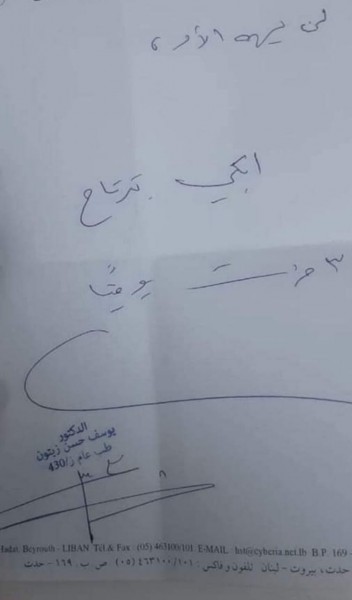 لمن يهمه الأمر،
ابكي بترتاح
٣ مرات يوميًا
الدكتور
يوسف حسن زيتون
طب عام ز/430
Hadat Beyrouth - LIBAN Tél & Fax (05) 463100/101 E-MAIL hst@cyberia.net.lb B.P. 169 -
حدث، بيروت - لبنان تلفون وفاكس ٤٦٣١٠٠/١٠١ (٠٥) ص.ب. ١٦٩ - حدث